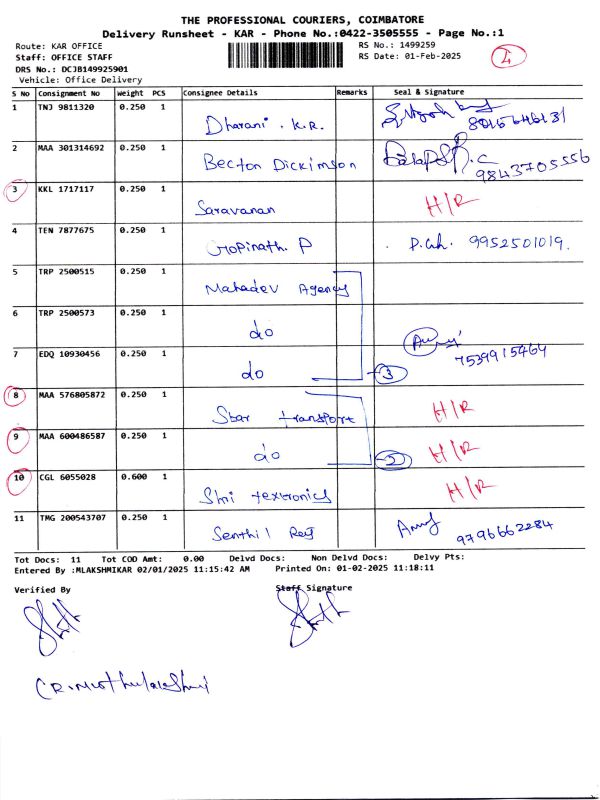 THE PROFESSIONAL COURIERS, COIMBATORE
Delivery Runsheet - KAR - Phone No.:0422-3505555 - Page No.:1
Route: KAR OFFICE
RS No.: 1499259
Staff: OFFICE STAFF
RS Date: 01-Feb-2025
DRS No.: DCJB149925901
Vehicle: Office Delivery
S No Consignment No Weight PCS Consignee Details Remarks Seal & Signature
1 TNJ 9811320 0.250 1 Dharani . K.R. 8015646131
2 MAA 301314692 0.250 1 Becton Dickimson 9843705556
3 KKL 1717117 0.250 1 Saravanan H/R
4 TEN 7877675 0.250 1 Gopinath. P 9952501019.
5 TRP 2500515 0.250 1 Mahadev Agency
6 TRP 2500573 0.250 1 do
7 EDQ 10930456 0.250 1 do 3 7539915464
8 MAA 576805872 0.250 1 Star transport H/R
9 MAA 600486587 0.250 1 do H/R
10 CGL 6055028 0.600 1 Shri textronics H/R
11 TMG 200543707 0.250 1 Senthil 9796662284
Tot Docs: 11 Tot COD Amt: 0.00 Delvd Docs: Non Delvd Docs: Delvy Pts:
Entered By :MLAKSHMIKAR 02/01/2025 11:15:42 AM Printed On: 01-02-2025 11:18:11
Verified By Staff Signature